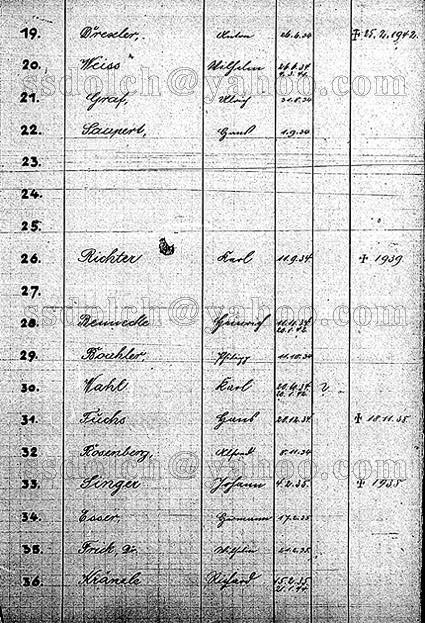 19. Drexler, Anton 26.6.34 ✝ 25.2.1942.
20. Weiss Wilhelm 26.6.34
ssdolch@yahoo.com
21. Graf, Ulrich
22. Hans 1.9.34
23.
24.
25.
26. Richter Karl 11.9.34 ✝ 1939
27.
ssdolch@yahoo.com
28. Heinrich
29. Philipp 11.10.34
30. Wahl Karl ?
31. Fuchs Hans 20.12.34 ✝ 18.11.35
32 Rosenberg, Alfred
ssdolch@yahoo.com
33. Singer Johann 4.2.35 ✝ 1935
34. Esser, Hermann 17.2.35
35. Frick, Dr. Wilhelm
36. Kränzle Richard 15.2.35